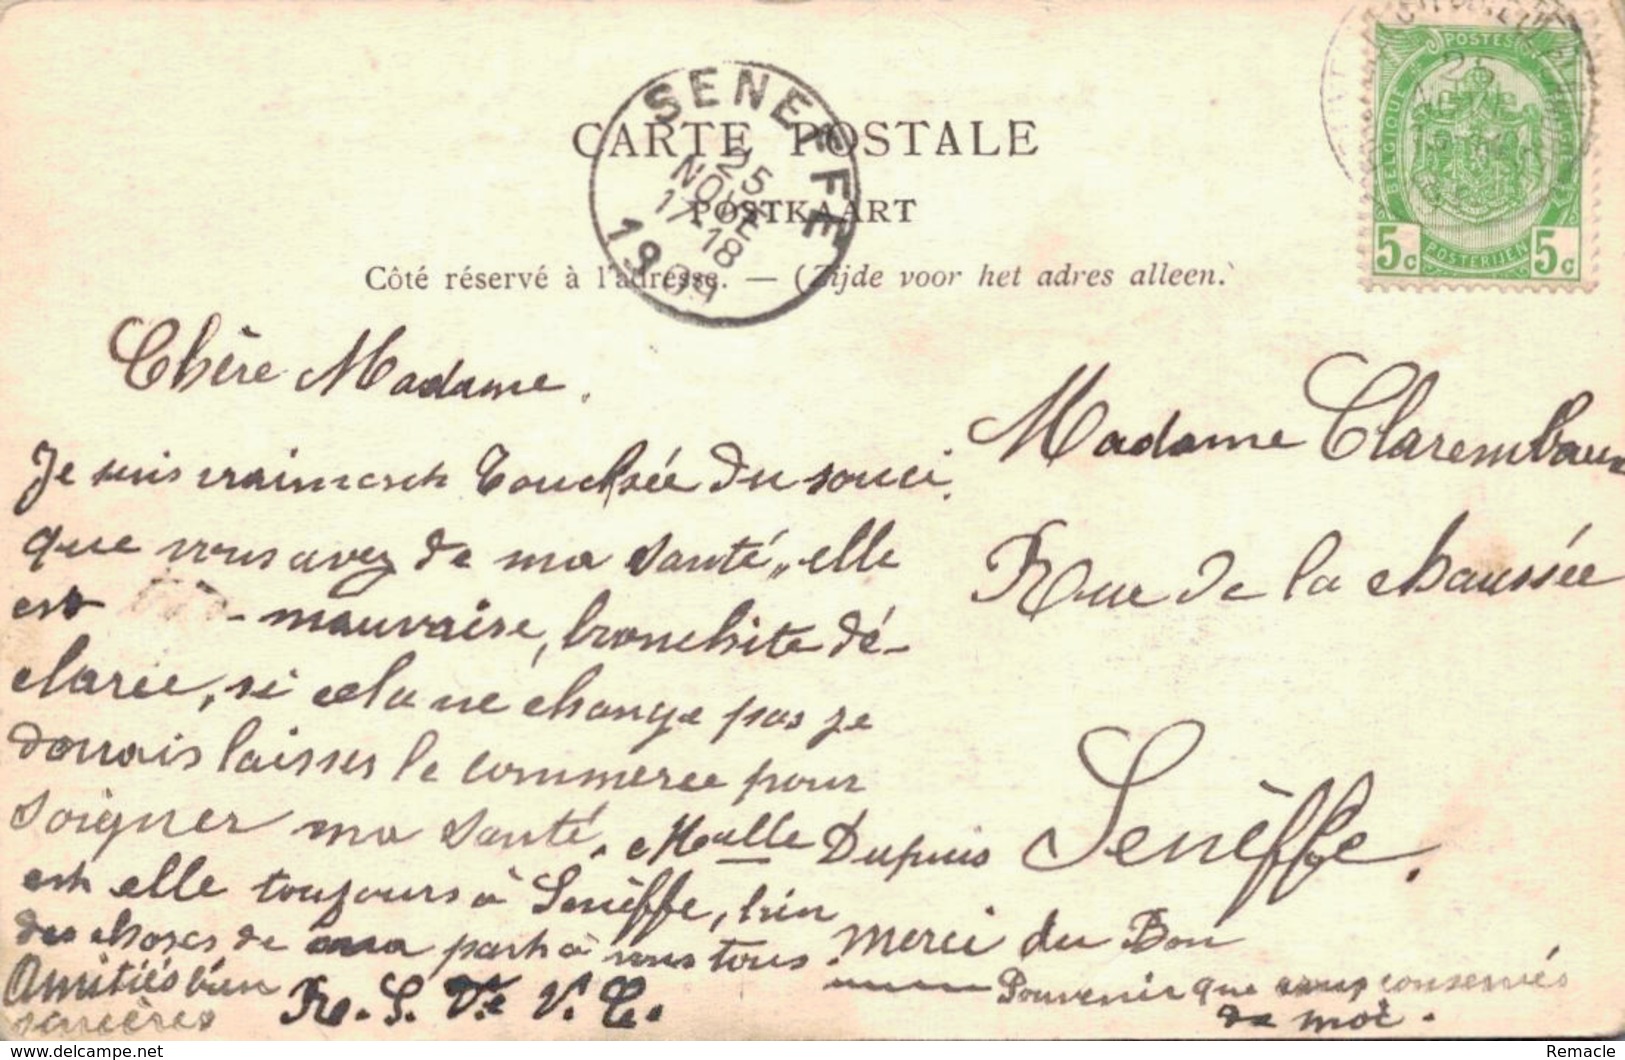 CARTE POSTALE
POSTKAART
Côté réservé à l'adresse. — (Zijde voor het adres alleen.
SENEFFE
25
NOVE
17-18
1909
POSTES
25
BELGIQUE
BELGIË
5c POSTERIJEN 5c
Chère Madame.
Je suis vraiment touchée du souci
que vous avez de ma santé, elle
est - mauvaise, bronchite dé-
clarée, si cela ne change pas je
devrais laisser le commerce pour
soigner ma santé. Melle Dupuis
est elle toujours à Senèffe, bien
des choses de ma part à vous tous.
Amitiés bien
sincères
Merci du Bon
Souvenir que vous conservés
de moi.
Madame Clarembaux
Rue de la chaussée
Senèffe.
delcampe.net
Remacle